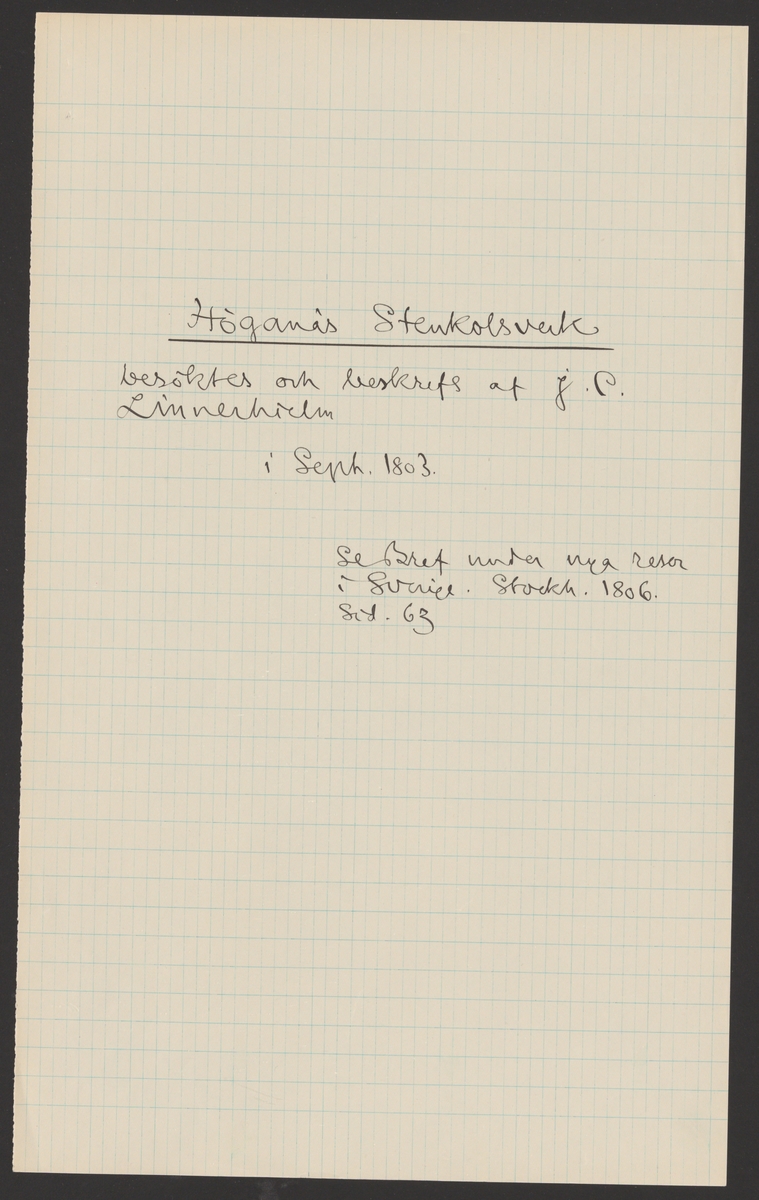 Höganäs Stenkolsverk
besöktes och beskrefs af J. C.
Linnerhielm
i Sept. 1803.
Se Bref under nya resor
i Sverige. Stockh. 1806.
Sid. 63